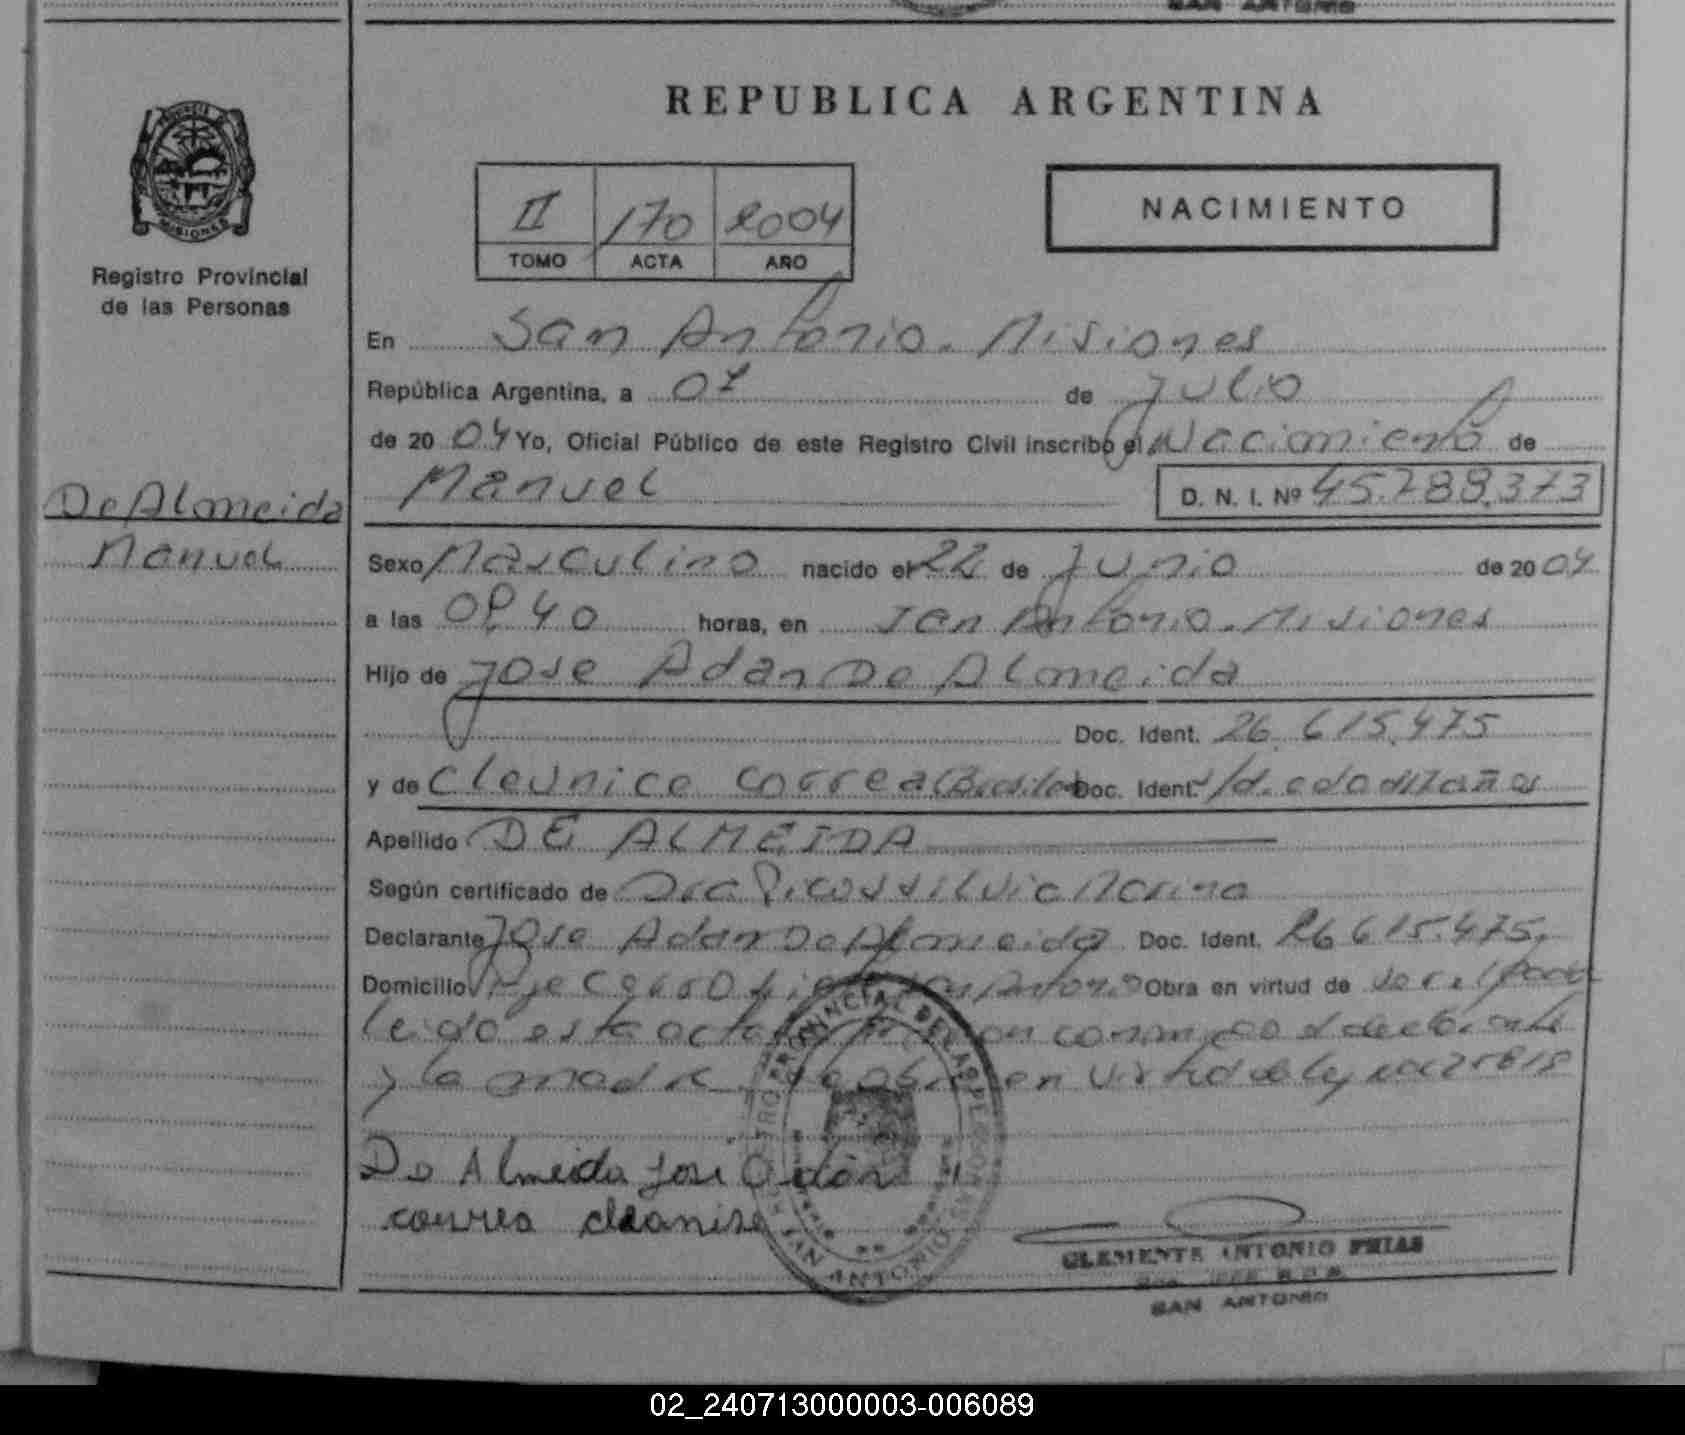 SAN ANTONIO
REPUBLICA ARGENTINA
PROVINCIA DE
MISIONES
Registro Provincial
de las Personas
II 170 2004
TOMO ACTA AÑO
NACIMIENTO
En San Antonio. Misiones
República Argentina, a 07 de Julio
de 20 04 Yo, Oficial Público de este Registro Civil inscribo el Nacimiento de
Manuel D. N. I. Nº 45.788.373
De Almeida
Manuel
Sexo Masculino nacido el 22 de Junio de 20 04
a las 40 horas, en San Antonio. Misiones
Hijo de Jose Adan De Almeida
Doc. Ident. 26.615.475
y de Cleunice Correa Doc. Ident.
Apellido DE ALMEIDA
Según certificado de Dra Picos Silvia Marina
Declarante Jose Adan De Almeida Doc. Ident. 26.615.475.
Domicilio San Antonio Obra en virtud de ser el padre
leido esta acta conmigo el declarante
y la madre en virtud de ley
De Almeida Jose Adán
correa cleanise
REGISTRO PROVINCIAL DE LAS PERSONAS
SAN ANTONIO
CLEMENTE ANTONIO FRIAS
SAN ANTONIO
02_240713000003-006089